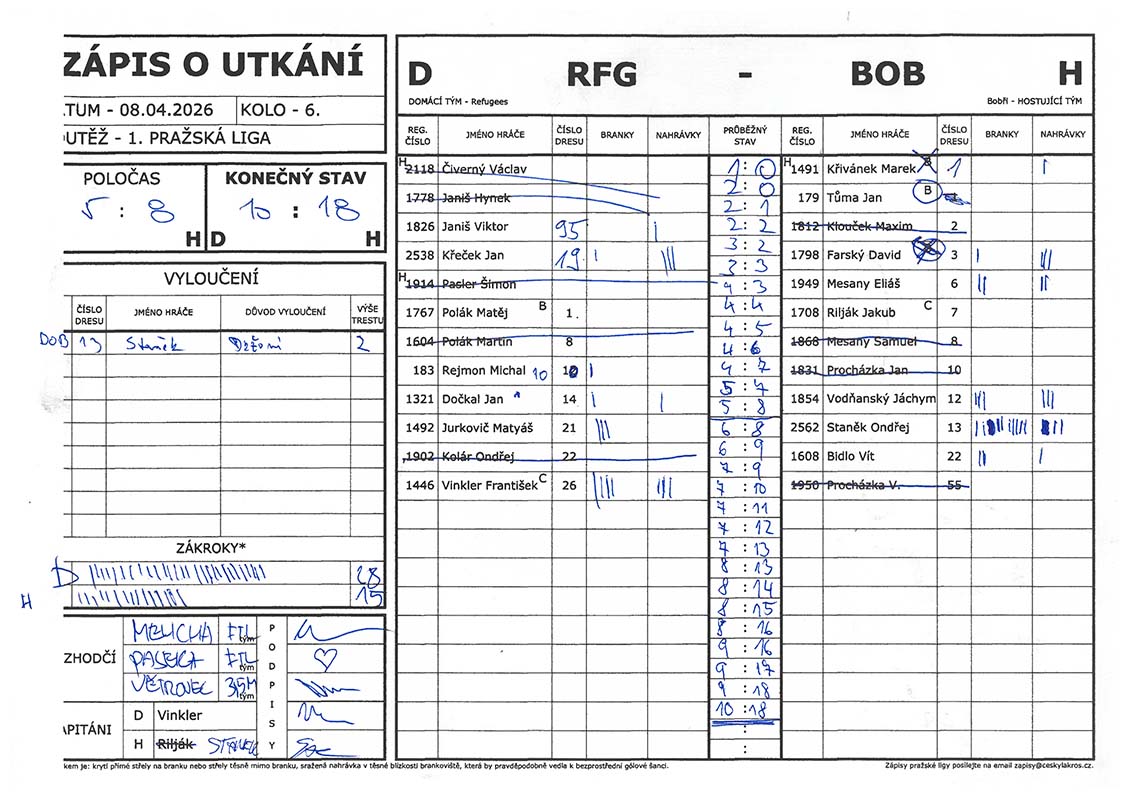 ZÁPIS O UTKÁNÍ
ATUM - 08.04.2026 KOLO - 6.
OUTĚŽ - 1. PRAŽSKÁ LIGA
POLOČAS KONEČNÝ STAV
5 : 8 10 : 18
H D H
VYLOUČENÍ
ČÍSLO DRESU JMÉNO HRÁČE DŮVOD VYLOUČENÍ VÝŠE TRESTU
BOB 13 Staněk Držení 2
ZÁKROKY*
D 28
H 15
ZHODČÍ
MELICHA FTL tým
PASEKA FTL tým
VĚTROVEC 35M tým
PODPISY
APITÁNI
D Vinkler
H Rilják STANĚK
D RFG - BOB H
DOMÁCÍ TÝM - Refugees Bobři - HOSTUJÍCÍ TÝM
REG. ČÍSLO JMÉNO HRÁČE ČÍSLO DRESU BRANKY NAHRÁVKY PRŮBĚŽNÝ STAV REG. ČÍSLO JMÉNO HRÁČE ČÍSLO DRESU BRANKY NAHRÁVKY
H 2118 Čiverný Václav 1:0 H 1491 Křivánek Marek B 1 I
1778 Janiš Hynek 2:0 179 Tůma Jan B
1826 Janiš Viktor 95 I 2:1 1812 Klouček Maxim 2
2538 Křeček Jan 19. I III 2:2 1798 Farský David 3 I III
H 1914 Pasler Šimon 3:2 1949 Mesany Eliáš 6 II II
1767 Polák Matěj B 1. 3:3 1708 Rilják Jakub C 7
1604 Polák Martin 8 4:3 1868 Mesany Samuel 8
183 Rejmon Michal 10 10 I 4:4 1831 Procházka Jan 10
1321 Dočkal Jan 14 I I 4:5 1854 Vodňanský Jáchym 12 III III
1492 Jurkovič Matyáš 21 III 4:6 2562 Staněk Ondřej 13
1902 Kolár Ondřej 22 4:7 1608 Bidlo Vít 22 II I
1446 Vinkler František C 26 IIII III 5:7 1950 Procházka V. 55
5:8
6:8
6:9
7:9
7:10
7:11
7:12
7:13
8:13
8:14
8:15
8:16
9:16
9:17
9:18
10:18
:
kem je: krytí přímé střely na branku nebo střely těsně mimo branku, sražená nahrávka v těsné blízkosti brankoviště, která by pravděpodobně vedla k bezprostřední gólové šanci.
Zápisy pražské ligy posílejte na email zapisy@ceskylakros.cz.